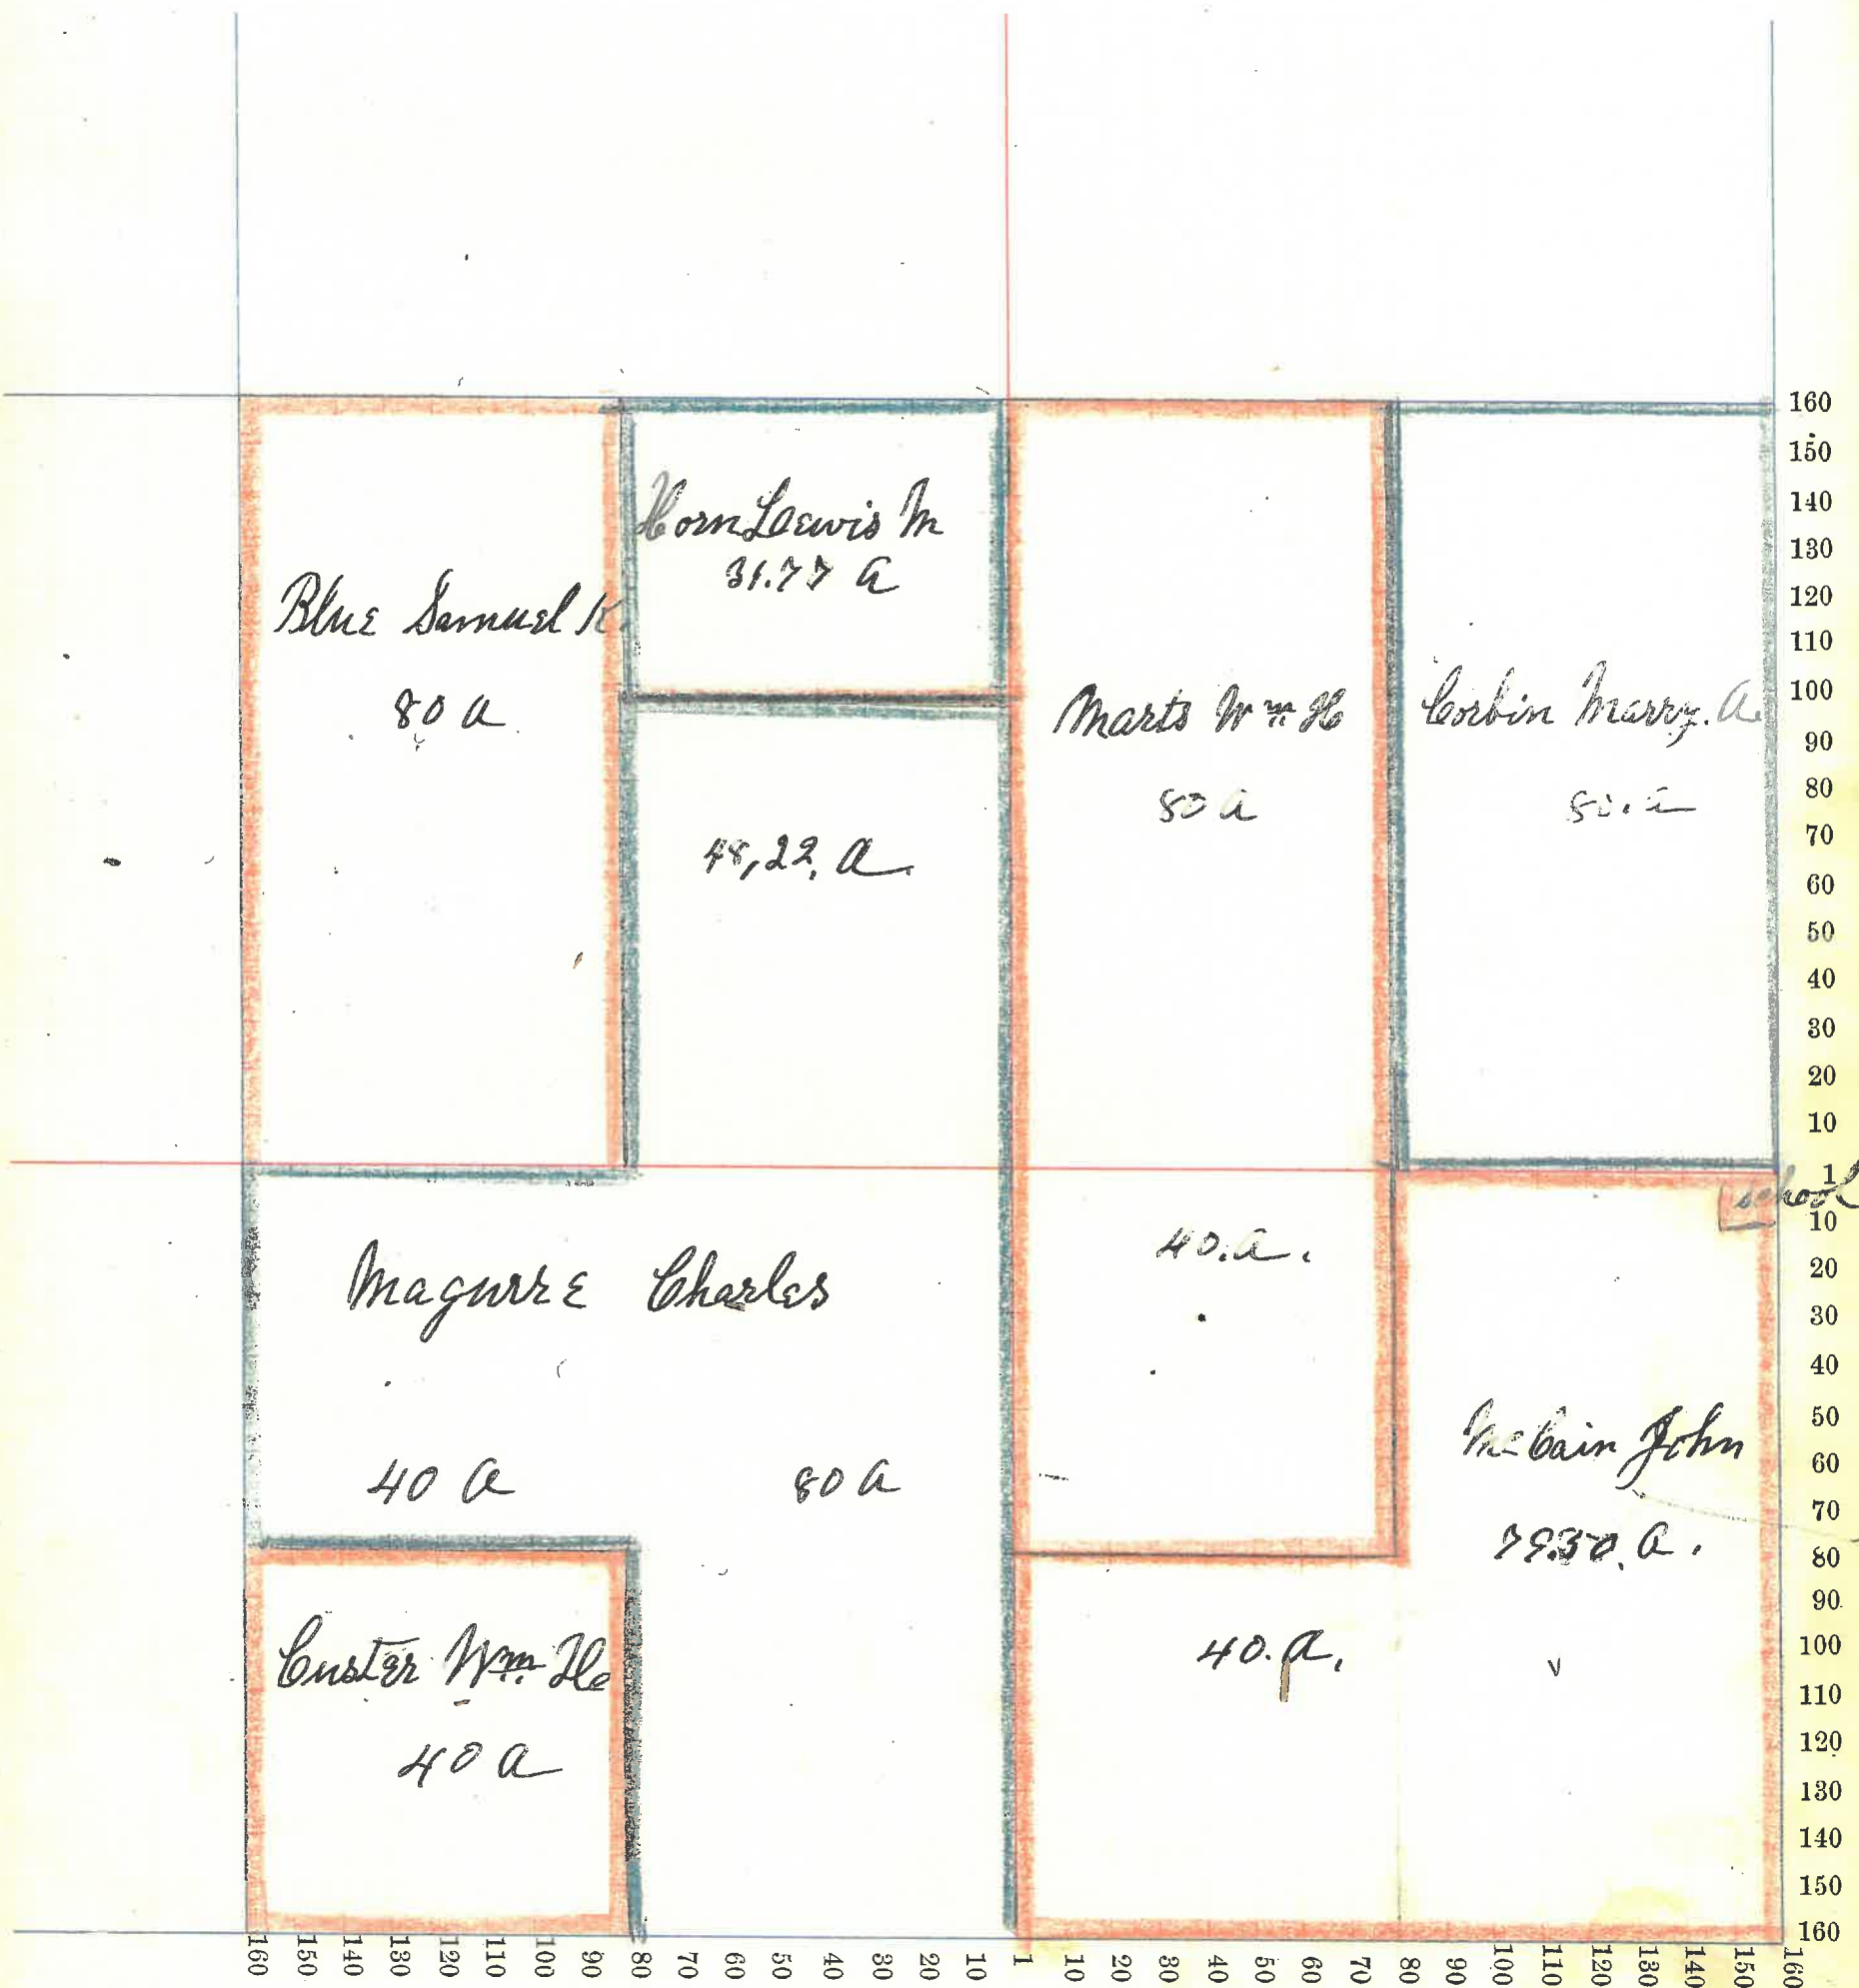 Horn Lewis M
31.77 a
Blue Samuel K.
80 a
48,22, a.
Marts Wm H
80 a
Corbin Marry. A.
80. a
160
150
140
130
120
110
100
90
80
70
60
50
40
30
20
10
1
school
10
20
30
40
50
60
70
80
90
100
110
120
130
140
150
160
Magurre Charles
40 a
80 a
40. a.
McCain John
79.50. a.
Custer Wm. H
40 a
40. a.
160 150 140 130 120 110 100 90 80 70 60 50 40 30 20 10 1 10 20 30 40 50 60 70 80 90 100 110 120 130 140 150 160